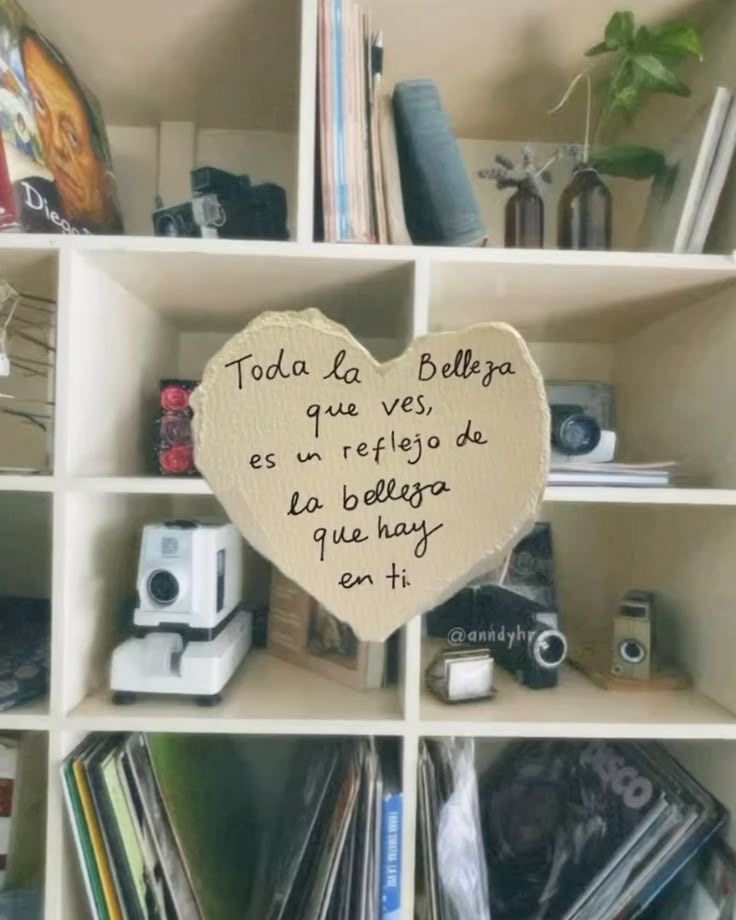 Diego
Toda la Belleza
que ves,
es un reflejo de
la belleza
que hay
en ti.
@anndyhr
DISCO